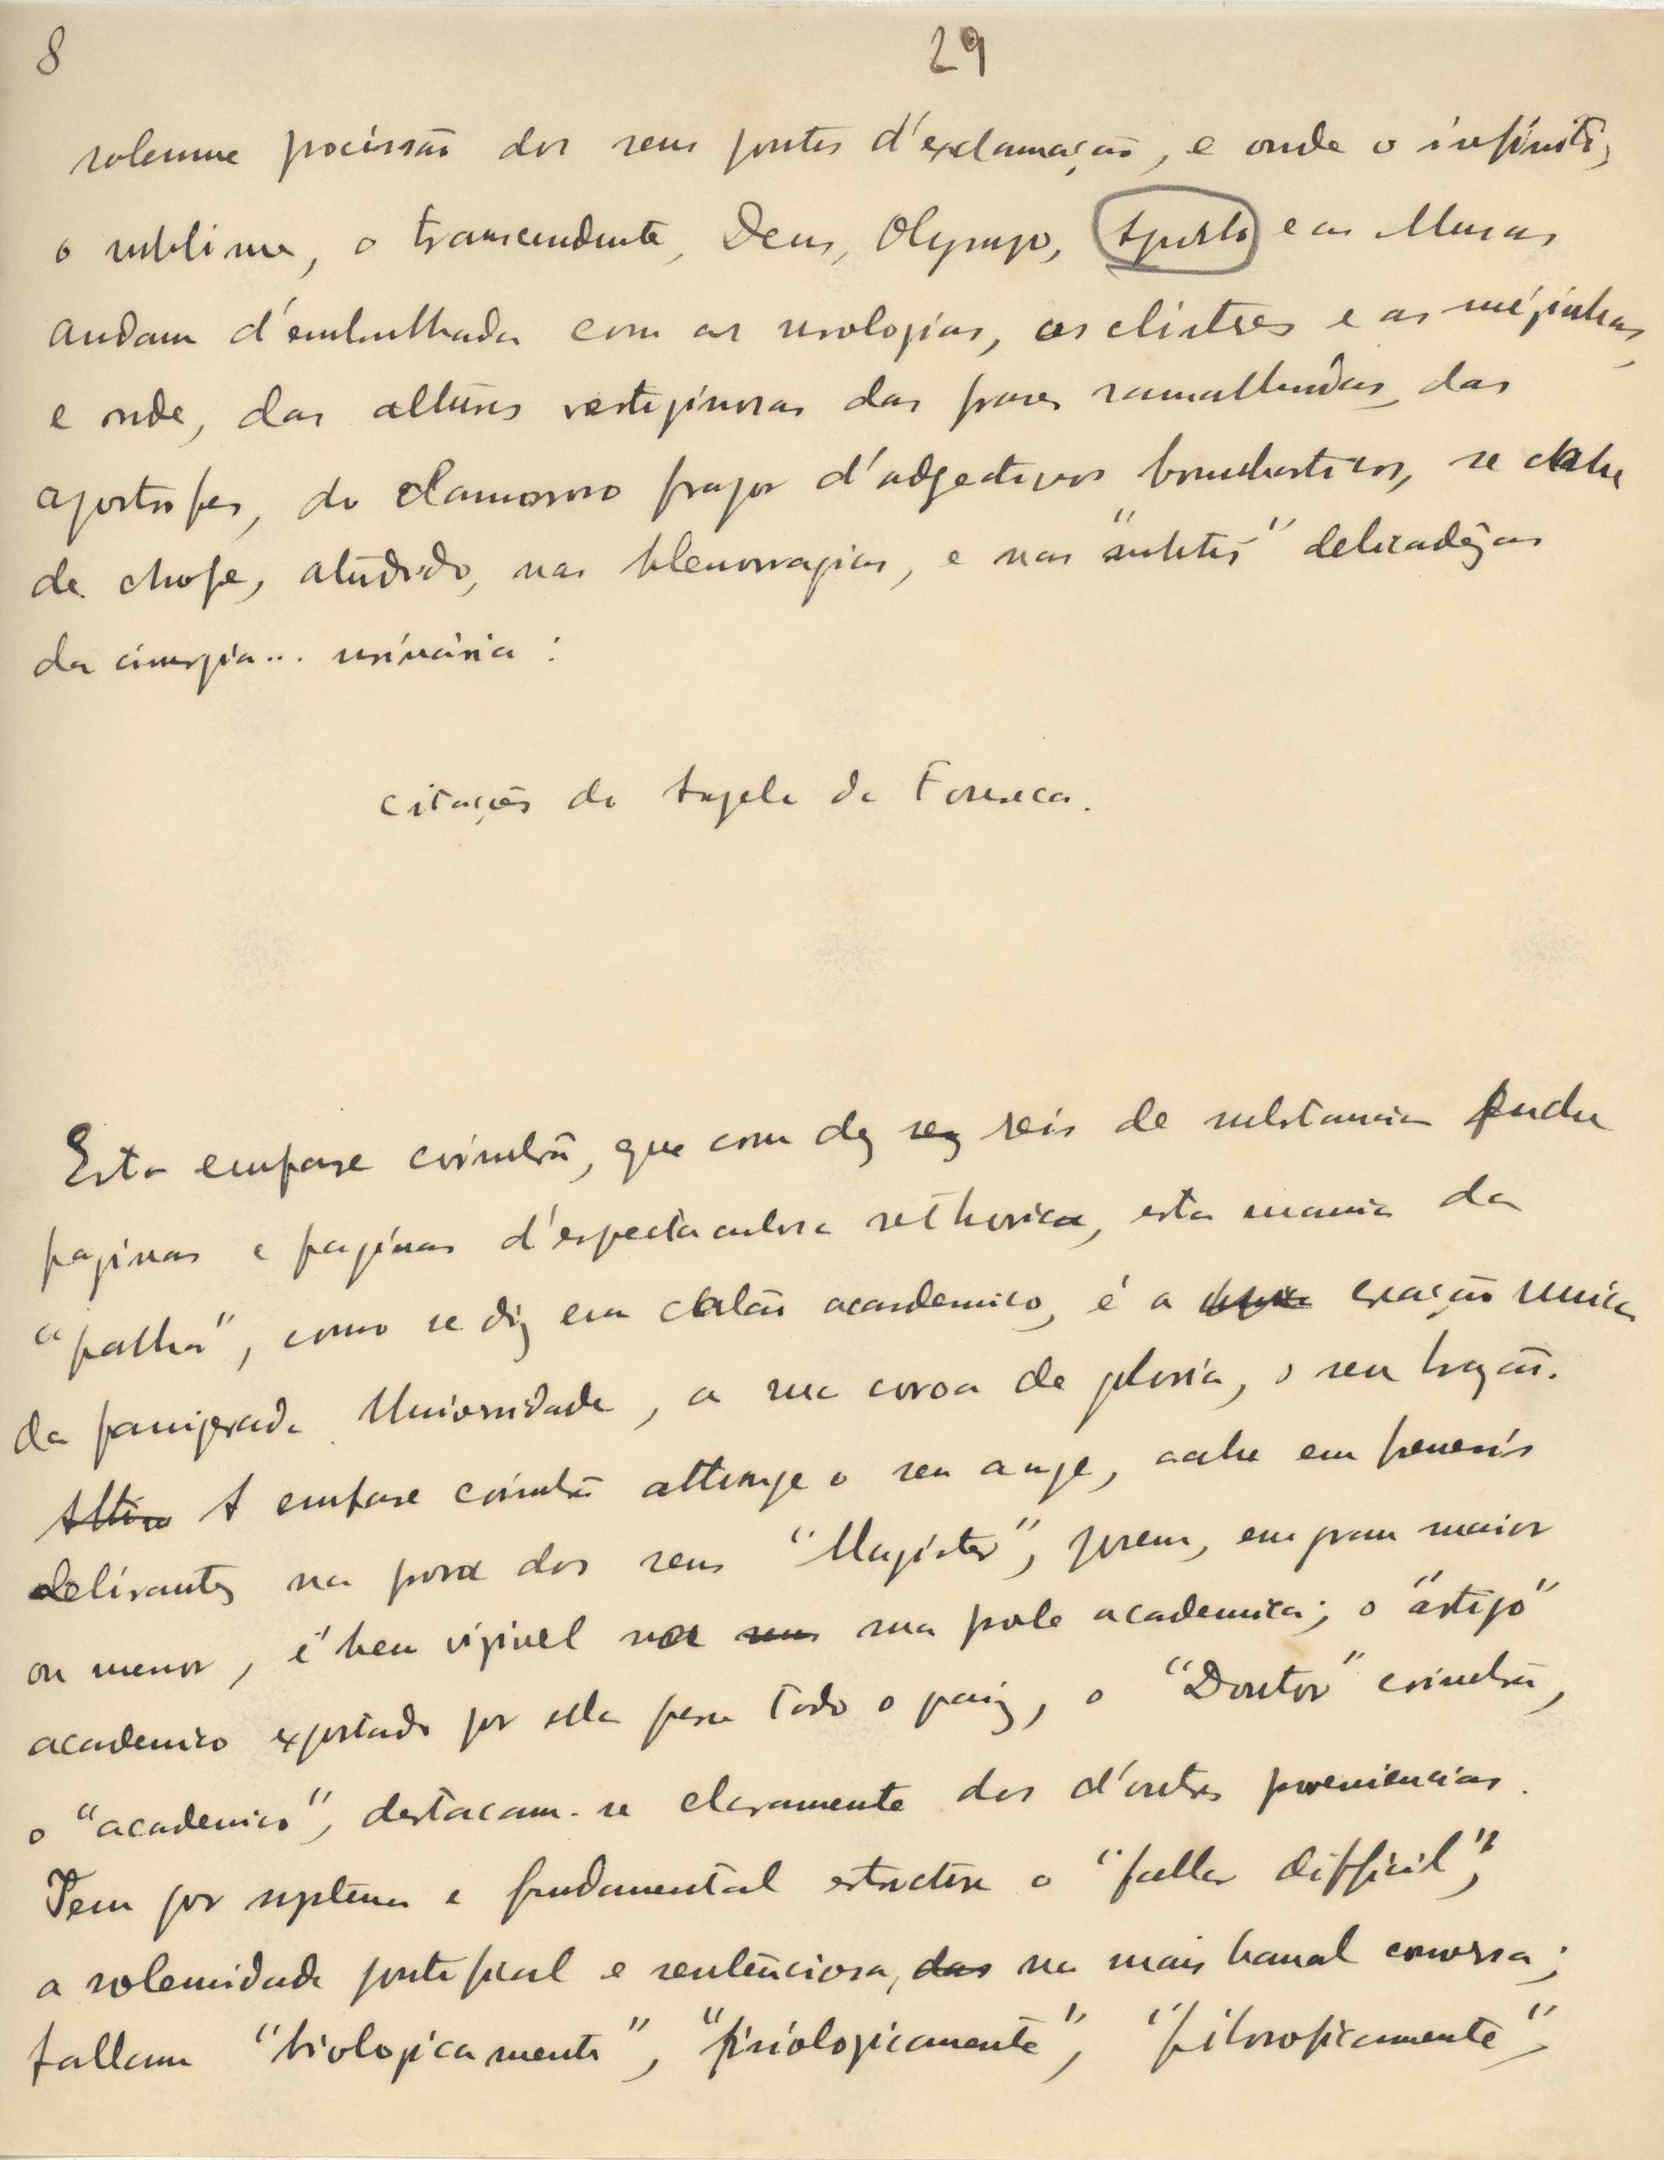 8 29
solemne procissão dos seus pontos d'exclamação, e onde o infinito,
o sublime, o transcendente, Deus, Olympo, Apollo e as Musas
andam d'embrulhada com as urologias, os clisteres e as méjinhas,
e onde, das alturas vertiginosas das frases ramalhudas, das
apostrofes, do clamoroso fragor d'adgectivos bombasticos, se cahe
de chofe, aturdido, nas blenorragias, e nas "subtis" delicadêzas
da cirurgia... urinária :
Citações do Angelo da Fonseca.
Esta emfase coimbrã, que com dez rez reis de substancia enche
paginas e paginas d'espectaculosa rethorica, esta mania da
"palha", como se diz em calão academico, é a creação unica
da famigerada Universidade, a sua coroa de gloria, o seu brazão.
Attin A emfase coimbrã attinge o seu auge, cahe em frenesis
delirantes na prosa dos seus "Magister", porem, em grau maior
ou menor, é bem vizivel na sua prole academica; o "artigo"
academico exportado por ella para todo o paiz, o "Doutor" coimbrã,
o "academico", destacam-se claramente dos d'outras proveniencias.
Tem por systema e fundamental estructura o "fallar difficil",
a solemnidade pontifical e sentenciosa, das na mais banal conversa;
fallam "biologicamente", "fisiologicamente", "filosoficamente",